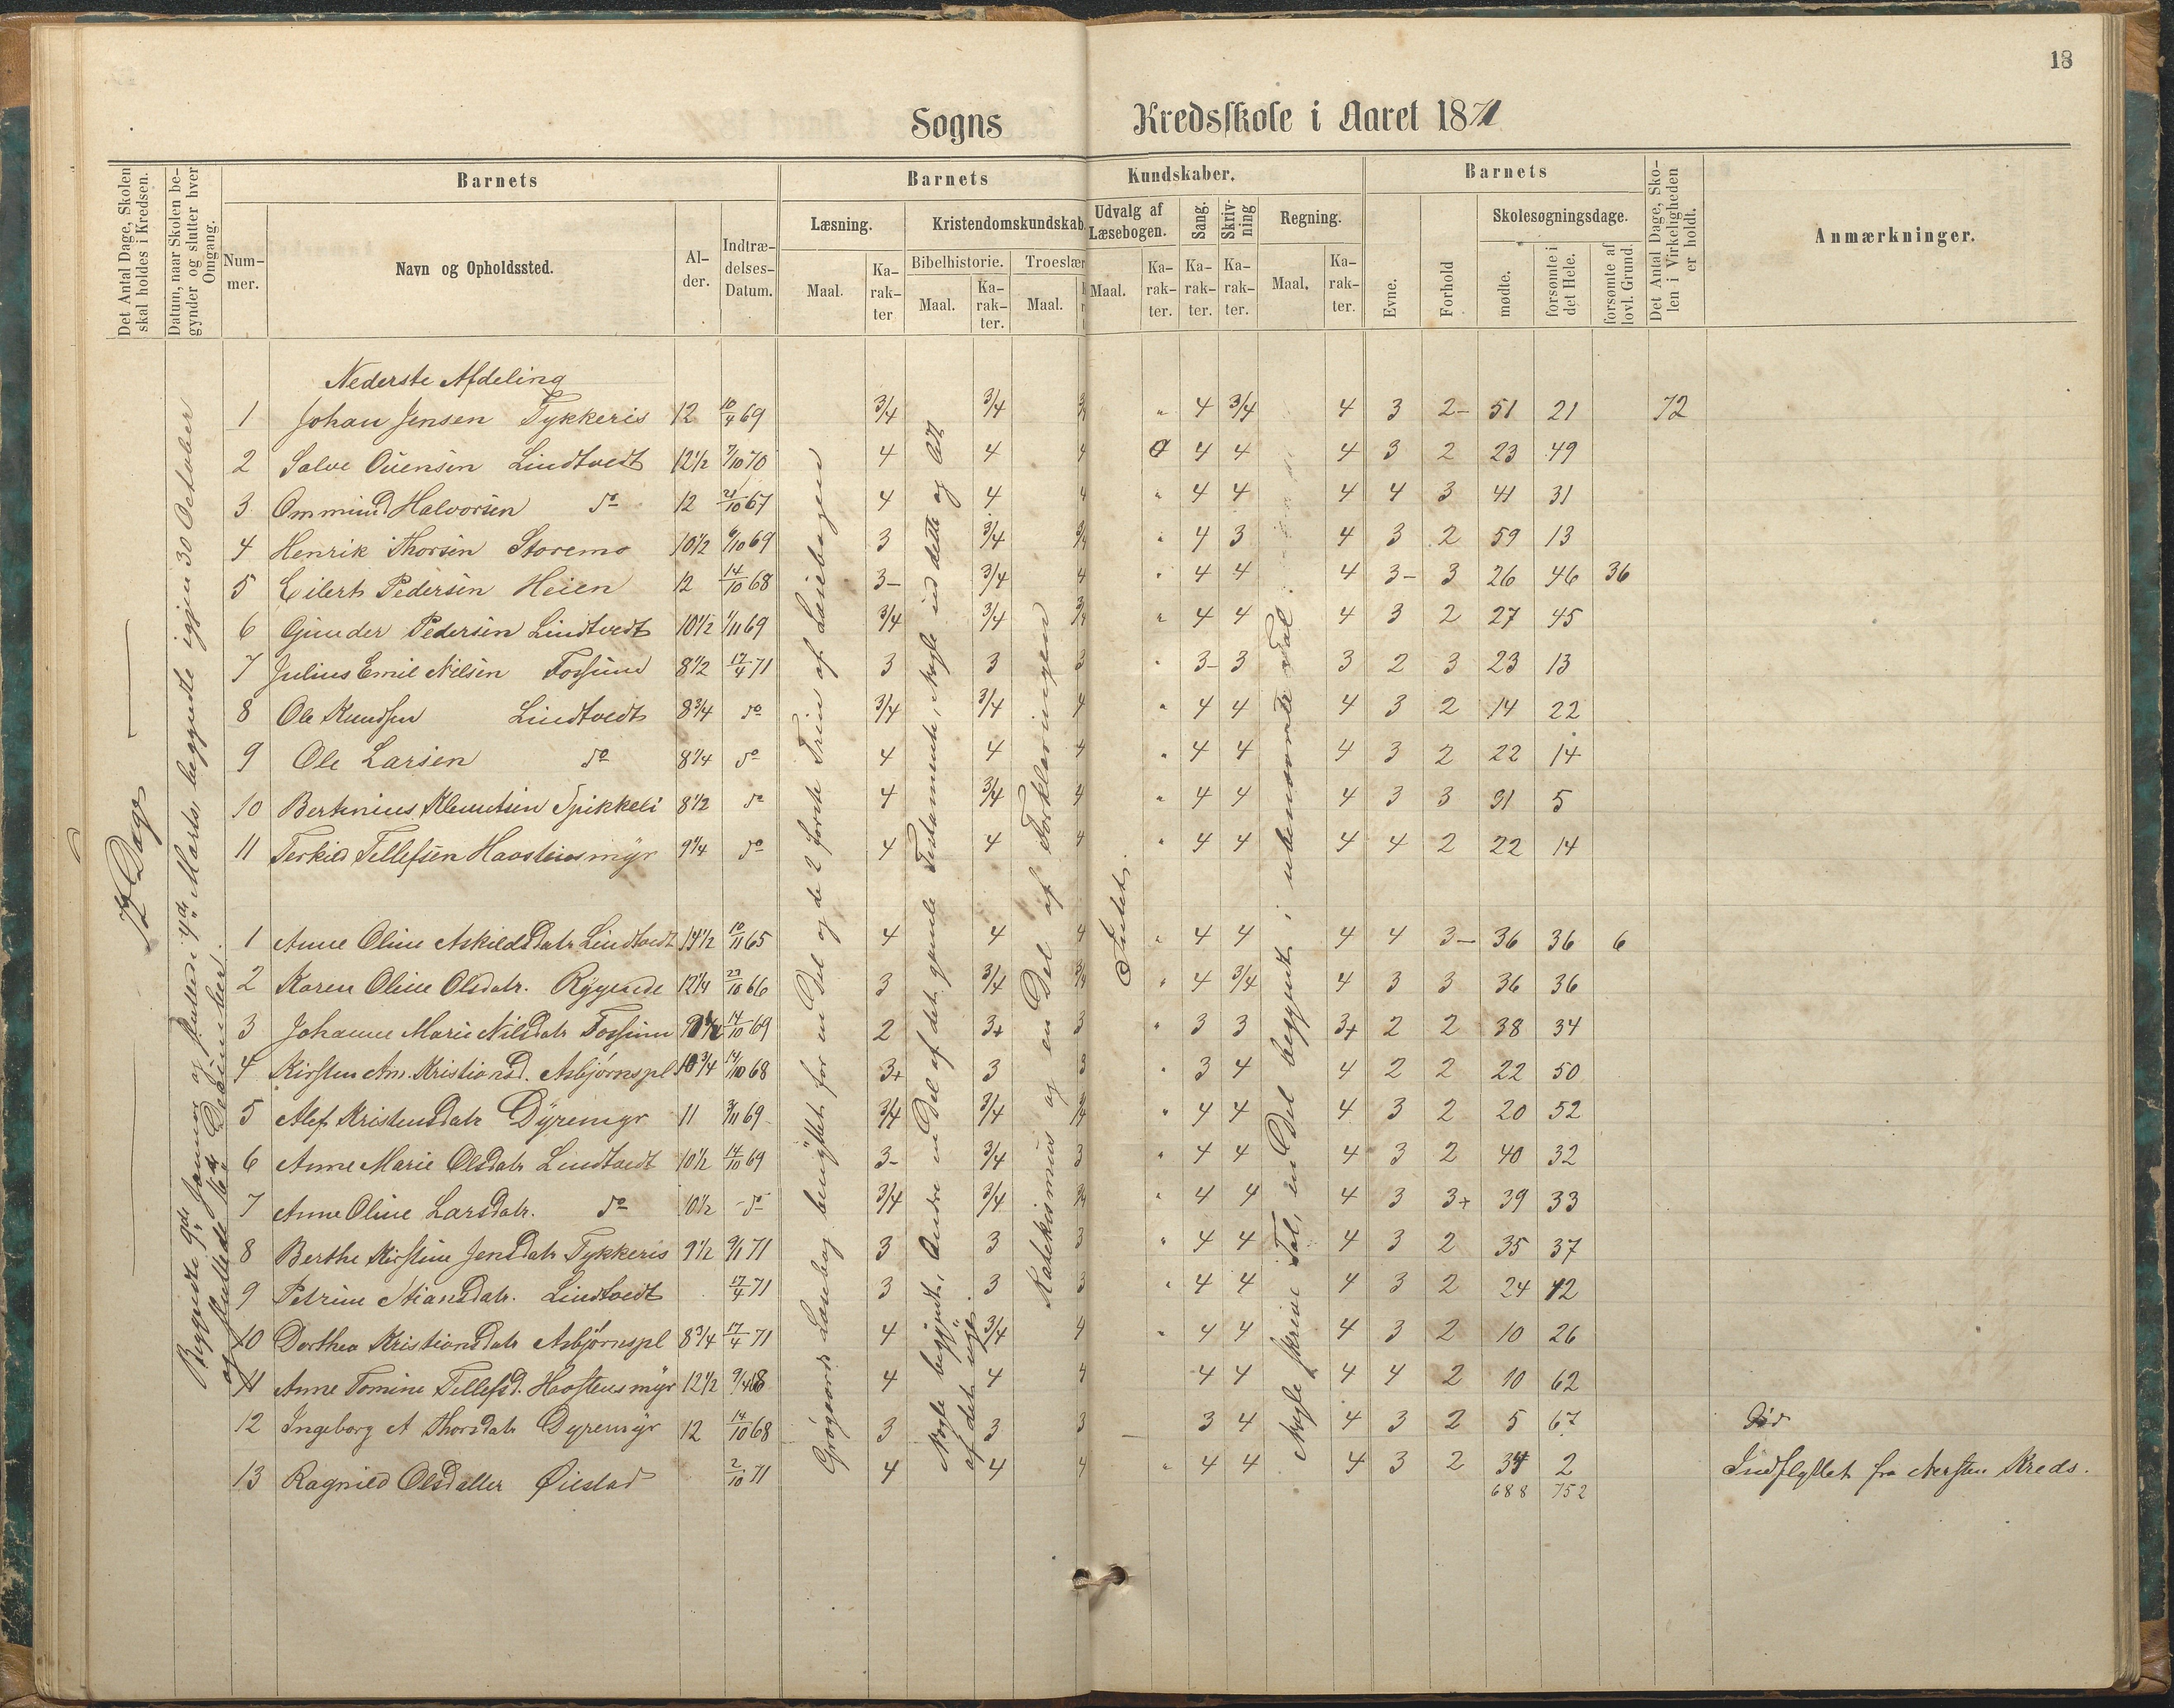 18
Sogns Kredsskole i Aaret 1871
Det Antal Dage, Skolen skal holdes i Kredsen.
Datum, naar Skolen begynder og slutter hver Omgang.
Barnets
Nummer.
Navn og Opholdssted.
Alder.
Indtrædelses-Datum.
Barnets Kundskaber.
Læsning.
Maal.
Karakter
Kristendomskundskab
Bibelhistorie.
Maal.
Karakter.
Troeslær
Maal.
Udvalg af Læsebogen.
Maal.
Karakter.
Sang.
Karakter.
Skrivning
Karakter.
Regning.
Maal.
Karakter.
Barnets
Evne.
Forhold
Skolesøgningsdage.
mødte.
forsømte i det Hele.
forsømte af lovl. Grund.
Det Antal Dage, Skolen i Virkeligheden er holdt.
Anmærkninger.
72 Dage
Begyndte 9de Januar og sluttede 4de Marts, begyndte igjen 30 October
og sluttede 16de December.
Nederste Afdeling
1 Johan Jensen Tykkeris 12 10/4 69 3/4 3/4 3/4 " 4 3/4 4 3 2- 51 21 72
2 Salve Ouensen Lindtvedt 12 1/2 7/10 70 4 4 4 4 4 4 3 2 23 49
3 Ommund Halvorsen do 12 21/10 67 4 4 4 " 4 4 4 4 3 41 31
4 Henrik Thorsen Storemo 10 1/2 6/10 69 3 3/4 3/4 " 4 3 4 3 2 59 13
5 Eilert Pedersen Heien 12 14/10 68 3- 3/4 4 " 4 4 4 3- 3 26 46 36
6 Gunder Pedersen Lindtvedt 10 1/2 1/11 69 3/4 3/4 3/4 " 4 4 4 3 2 27 45
7 Julius Emil Nilsen Fossum 8 1/2 17/4 71 3 3 3 " 3- 3 3 2 3 23 13
8 Ole Knudsen Lindtvedt 8 3/4 do 3/4 3/4 4 " 4 4 4 3 2 14 22
9 Ole Larsen do 8 1/4 do 4 4 4 " 4 4 4 3 2 22 14
10 Bertinius Klemetsen Spikkeli 8 1/2 do 4 3/4 4 " 4 4 4 3 3 31 5
11 Terkild Tellefsen Haastensmyr 9 1/4 do 4 4 4 " 4 4 4 4 2 22 14
1 Anne Oline Askildsdatr Lindtvedt 14 1/2 10/11 65 4 4 4 " 4 4 4 4 3- 36 36 6
2 Karen Oline Olsdatr. Rygende 12 1/4 27/10 66 3 3/4 3/4 " 4 3/4 4 3 3 36 36
3 Johanne Marie Nilsdatr Fossum 14/10 69 2 3+ 3 " 3 3 3+ 2 2 38 34
4 Kirsten Am. Kristiansd. Asbjørnspl 10 3/4 14/10 68 3+ 3 3 " 3 4 4 2 2 22 50
5 Alef Kristensdatr Dyremyr 11 3/11 69 3/4 3/4 3/4 " 4 4 4 3 2 20 52
6 Anne Marie Olsdatr Lindtvedt 10 1/2 14/10 69 3- 3/4 3 " 4 4 4 3 2 40 32
7 Anne Oline Larsdatr. do 10 1/2 do 3/4 3/4 3/4 " 4 4 4 3 3+ 39 33
8 Berthe Kirstine Jensdatr Tykkeris 9 1/2 9/1 71 3 3 3 " 4 4 4 3 2 35 37
9 Petrine Stiansdatr. Lindtvedt 17/4 71 3 3 3 " 4 4 4 3 2 24 12
10 Dorthea Kristiansdatr Asbjørnspl 8 3/4 17/4 71 4 3/4 4 " 4 4 4 3 2 10 26
11 Anne Tomine Tellefsd. Haastensmyr 12 1/2 9/4 68 4 4 4 4 4 4 4 2 10 62
12 Ingeborg A Thorsdatr Dyremyr 12 14/10 68 3 3 3 3 4 4 3 2 5 67 Død
13 Ragnild Olsdatter Øiestad 2/10 71 4 4 4 " 4 4 4 3 2 34 2 Indflyttet fra Nersten Kreds.
688 752
Grøgaards Læsebog benyttet for en Del og de 2 første Trin af Læsebogen
Nogle begyndt, Andre en Del af det gamle Testamente, Nogle ud dette og Alt
af det nye.
Katekismus og en Del af Forklaringen
Intet.
Nogle skrive Tal, en Del begyndt i ubenævnte Tal